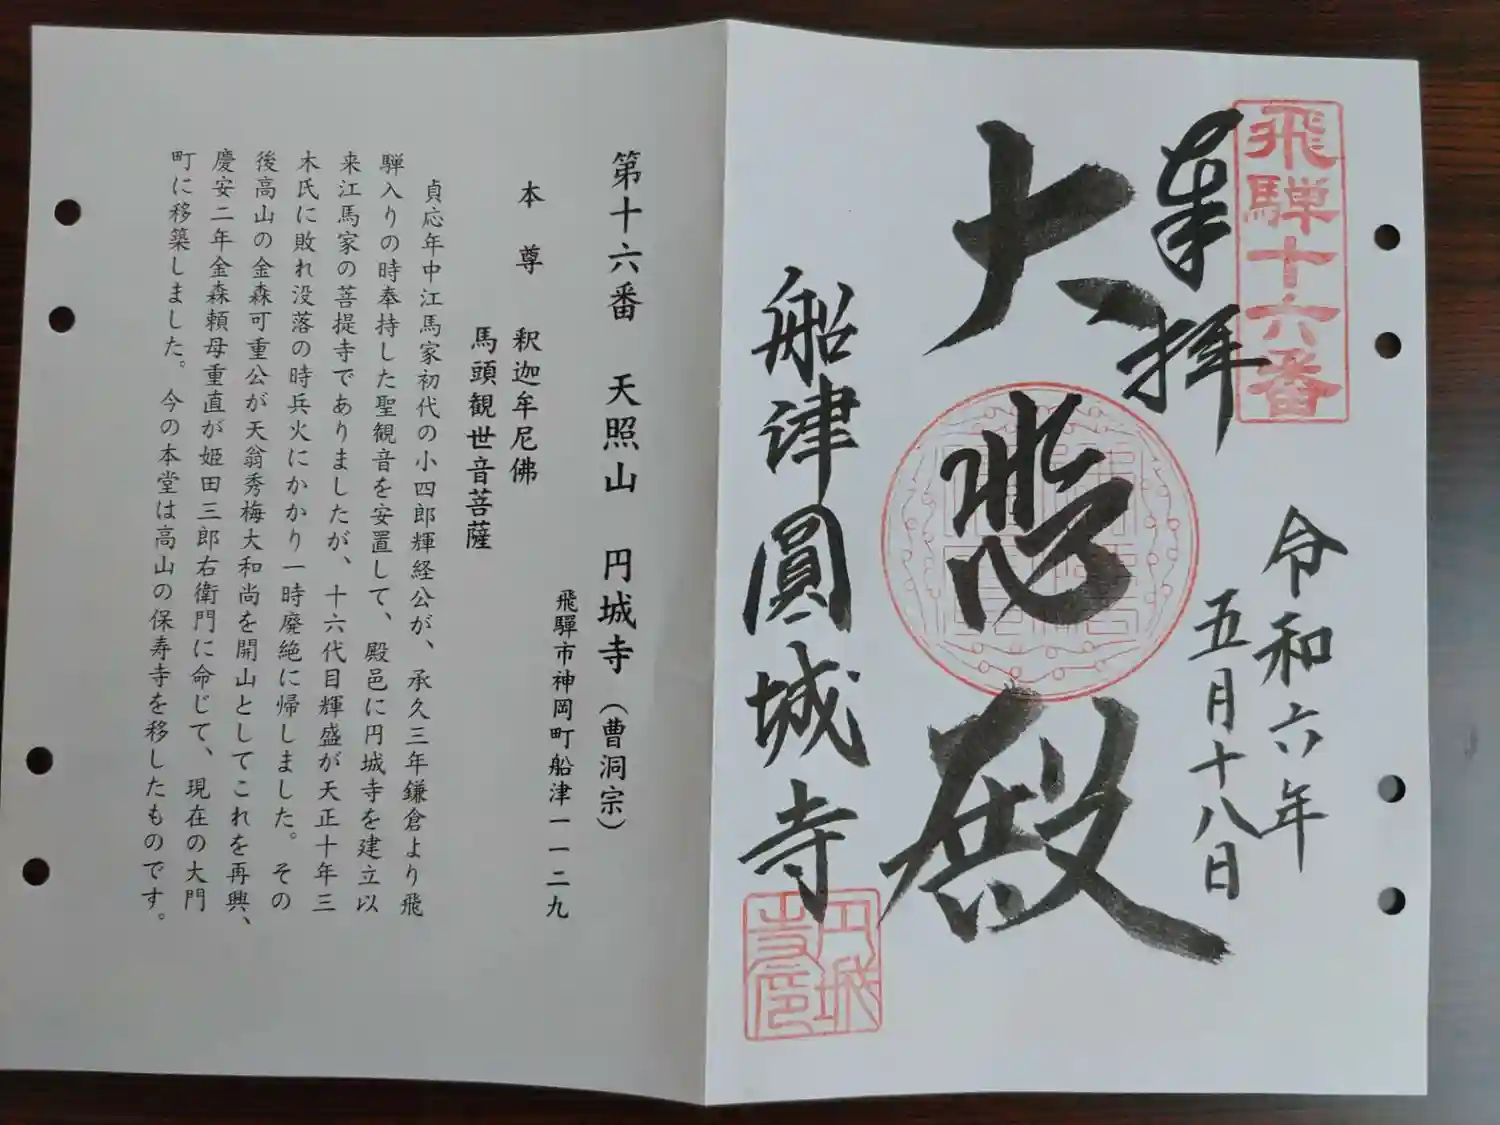 飛騨十六番
奉拝
令和六年
五月十八日
大悲殿
船津圓城寺
円城寺印
第十六番　天照山　円城寺（曹洞宗）
飛騨市神岡町船津一一二九
本　尊　釈迦牟尼佛
馬頭観世音菩薩
貞応年中江馬家初代の小四郎輝経公が、承久三年鎌倉より飛
騨入りの時奉持した聖観音を安置して、殿邑に円城寺を建立以
来江馬家の菩提寺でありましたが、十六代目輝盛が天正十年三
木氏に敗れ没落の時兵火にかかり一時廃絶に帰しました。その
後高山の金森可重公が天翁秀梅大和尚を開山としてこれを再興、
慶安二年金森頼母重直が姫田三郎右衛門に命じて、現在の大門
町に移築しました。今の本堂は高山の保寿寺を移したものです。